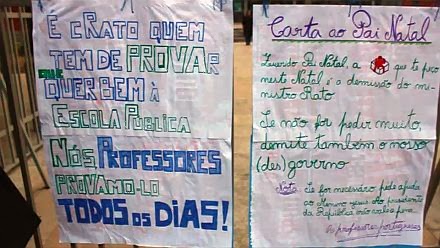 É CRATO QUEM
TEM DE PROVAR
QUE
QUER BEM À
ESCOLA PÚBLICA
NÓS, PROFESSORES
PROVAMO-LO
TODOS OS DIAS!
Carta ao Pai Natal
Querido Pai Natal, a que te peço
neste Natal é a demissão do mi-
nistro Rato
Se não for pedir muito,
demite também o nosso
(des)governo
Nota: Se for necessário pede ajuda
ao Menino Jesus
da República não vale a pena
As professoras portuguesas